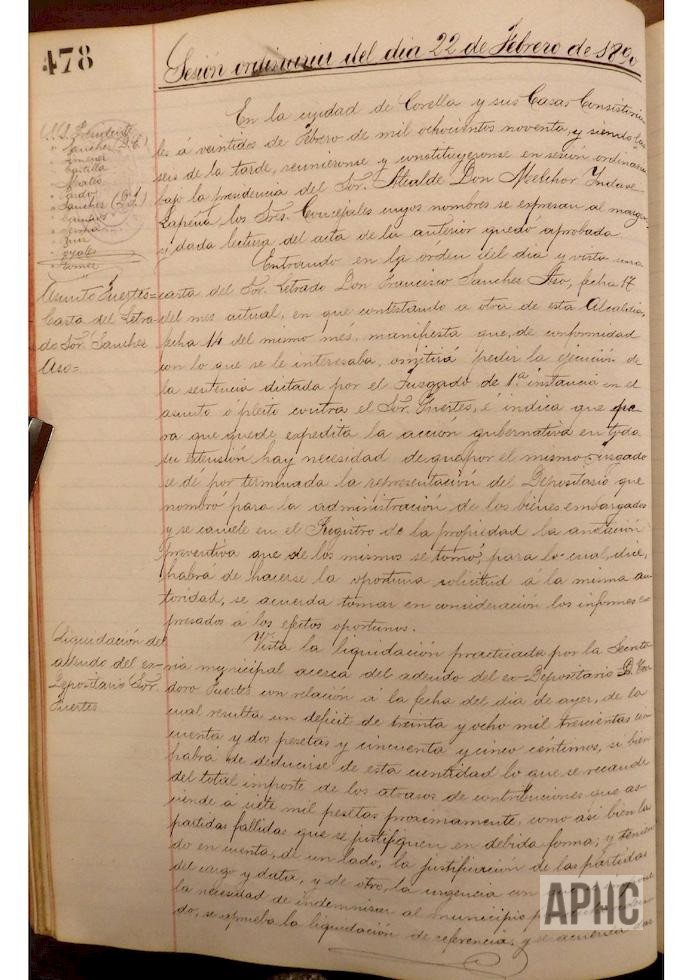 478
Sesión ordinaria del dia 22 de Febrero de 1890
S. S. Presidente
" Sanchez (D. C.)
" Jimenez
" Castilla
" Sanchez (D. L.)
Asunto Fuertes=
Carta del Letra-
do Sor. Sanchez
Aso=
En la ciudad de Corella y sus Casas Consistoria-
les á veintidos de Febrero de mil ochocientos noventa, y siendo las
seis de la tarde, reunieronse y constituyeronse en sesión ordinaria
bajo la presidencia del Sor. Alcalde Don Melchor Indave
Lapeña los Sres. Concejales cuyos nombres se expresan al margen
y dada lectura del acta de la anterior quedó aprobada.
Entrando en la órden del dia y vista una
carta del Sor. Letrado Don Francisco Sanchez Aso, fecha 17
del mes actual, en que contestando a otra de esta Alcaldia,
fecha 14 del mismo més, manifiesta que, de conformidad
con lo que se le interesaba, omitiría pedir la ejecución de
la sentencia dictada por el Juzgado de 1.ª instancia en el
asunto ó pleito contra el Sor. Fuertes, é indica que pa-
ra que quede expedita la acción gubernativa en toda
su extensión hay necesidad de que por el mismo Juzgado
se dé por terminada la representación del Depositario que
nombró para la administración de los bienes embargados
y se cancele en el Registro de la propiedad la anotación
preventiva que de los mismos se tomó, para lo cual, dice,
habrá de hacerse la oportuna solicitud á la misma au-
toridad, se acuerda tomar en consideración los informes ex-
presados á los efectos oportunos.
Liquidación del
adeudo del ex-
Depositario Sor.
Fuertes
Vista la liquidación practicada por la Secreta-
ria municipal acerca del adeudo del ex-Depositario D. Teo-
doro Fuertes con relación á la fecha del dia de ayer, de la
cual resulta un deficit de treinta y ocho mil trescientas cin-
cuenta y dos pesetas y cincuenta y cinco céntimos, si bien
habrá de deducirse de esta cantidad lo que se recaude
del total importe de los atrasos de contribuciones que as-
ciende á siete mil pesetas proximamente, como asi bien las
partidas fallidas que se justifiquen en debida forma; y tenien-
do en cuenta, de un lado, la justificación de las partidas
del cargo y data, y de otro, la urgencia con
la necesidad de indemnizar al municipio
do, se aprueba la liquidación de referencia, y se acuerda
APHC